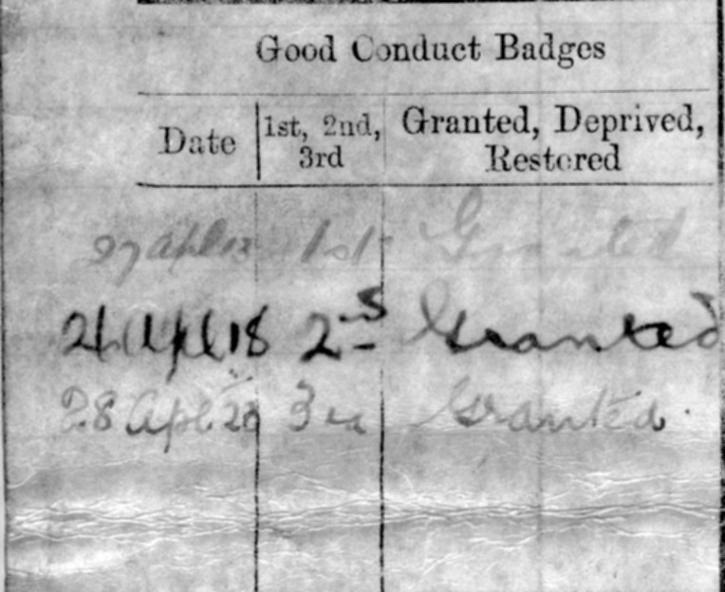 Good Conduct Badges
Date 1st, 2nd, 3rd Granted, Deprived, Restored
27 Apl 13 1st Granted
Apl 18 2nd Granted
28 Apl 23 3rd Granted